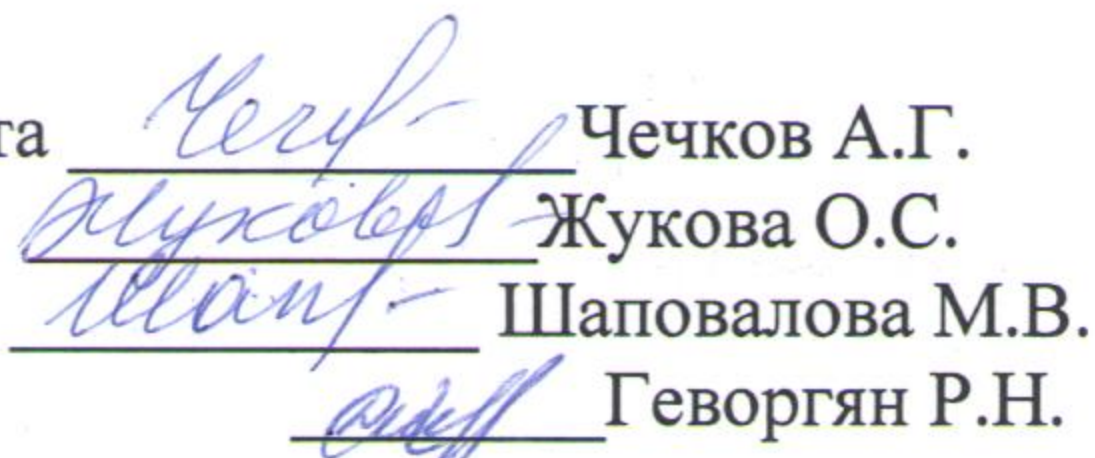 та Чечков А.Г.
Жукова Жукова О.С.
Шаповалова М.В.
Геворгян Р.Н.